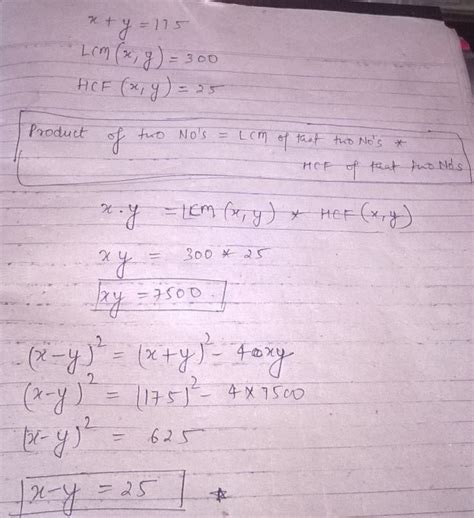 x + y = 175
LCM(x, y) = 300
HCF (x, y) = 25
Product of two No's = LCM of that two No's *
HCF of that two No's
x . y = LCM (x, y) * HCF (x, y)
xy = 300 * 25
xy = 7500.
(x-y)² = (x+y)² - 4xy
(x-y)² = (175)² - 4 x 7500
(x-y)² = 625
x-y = 25